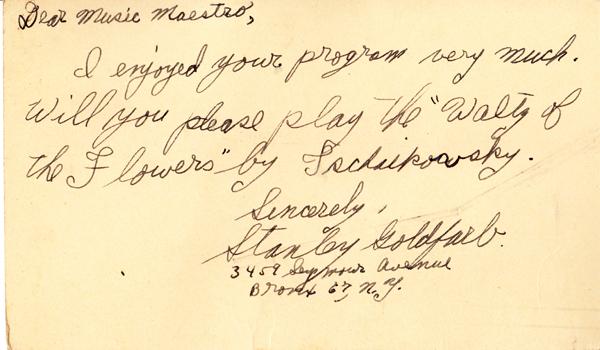 Dear Music Maestro,
I enjoyed your program very much.
Will you please play the "Waltz of
the Flowers" by Tschaikowsky.
Sincerely,
Stanley Goldfarb.
3459 Seymour Avenue
Bronx 67, N.Y.